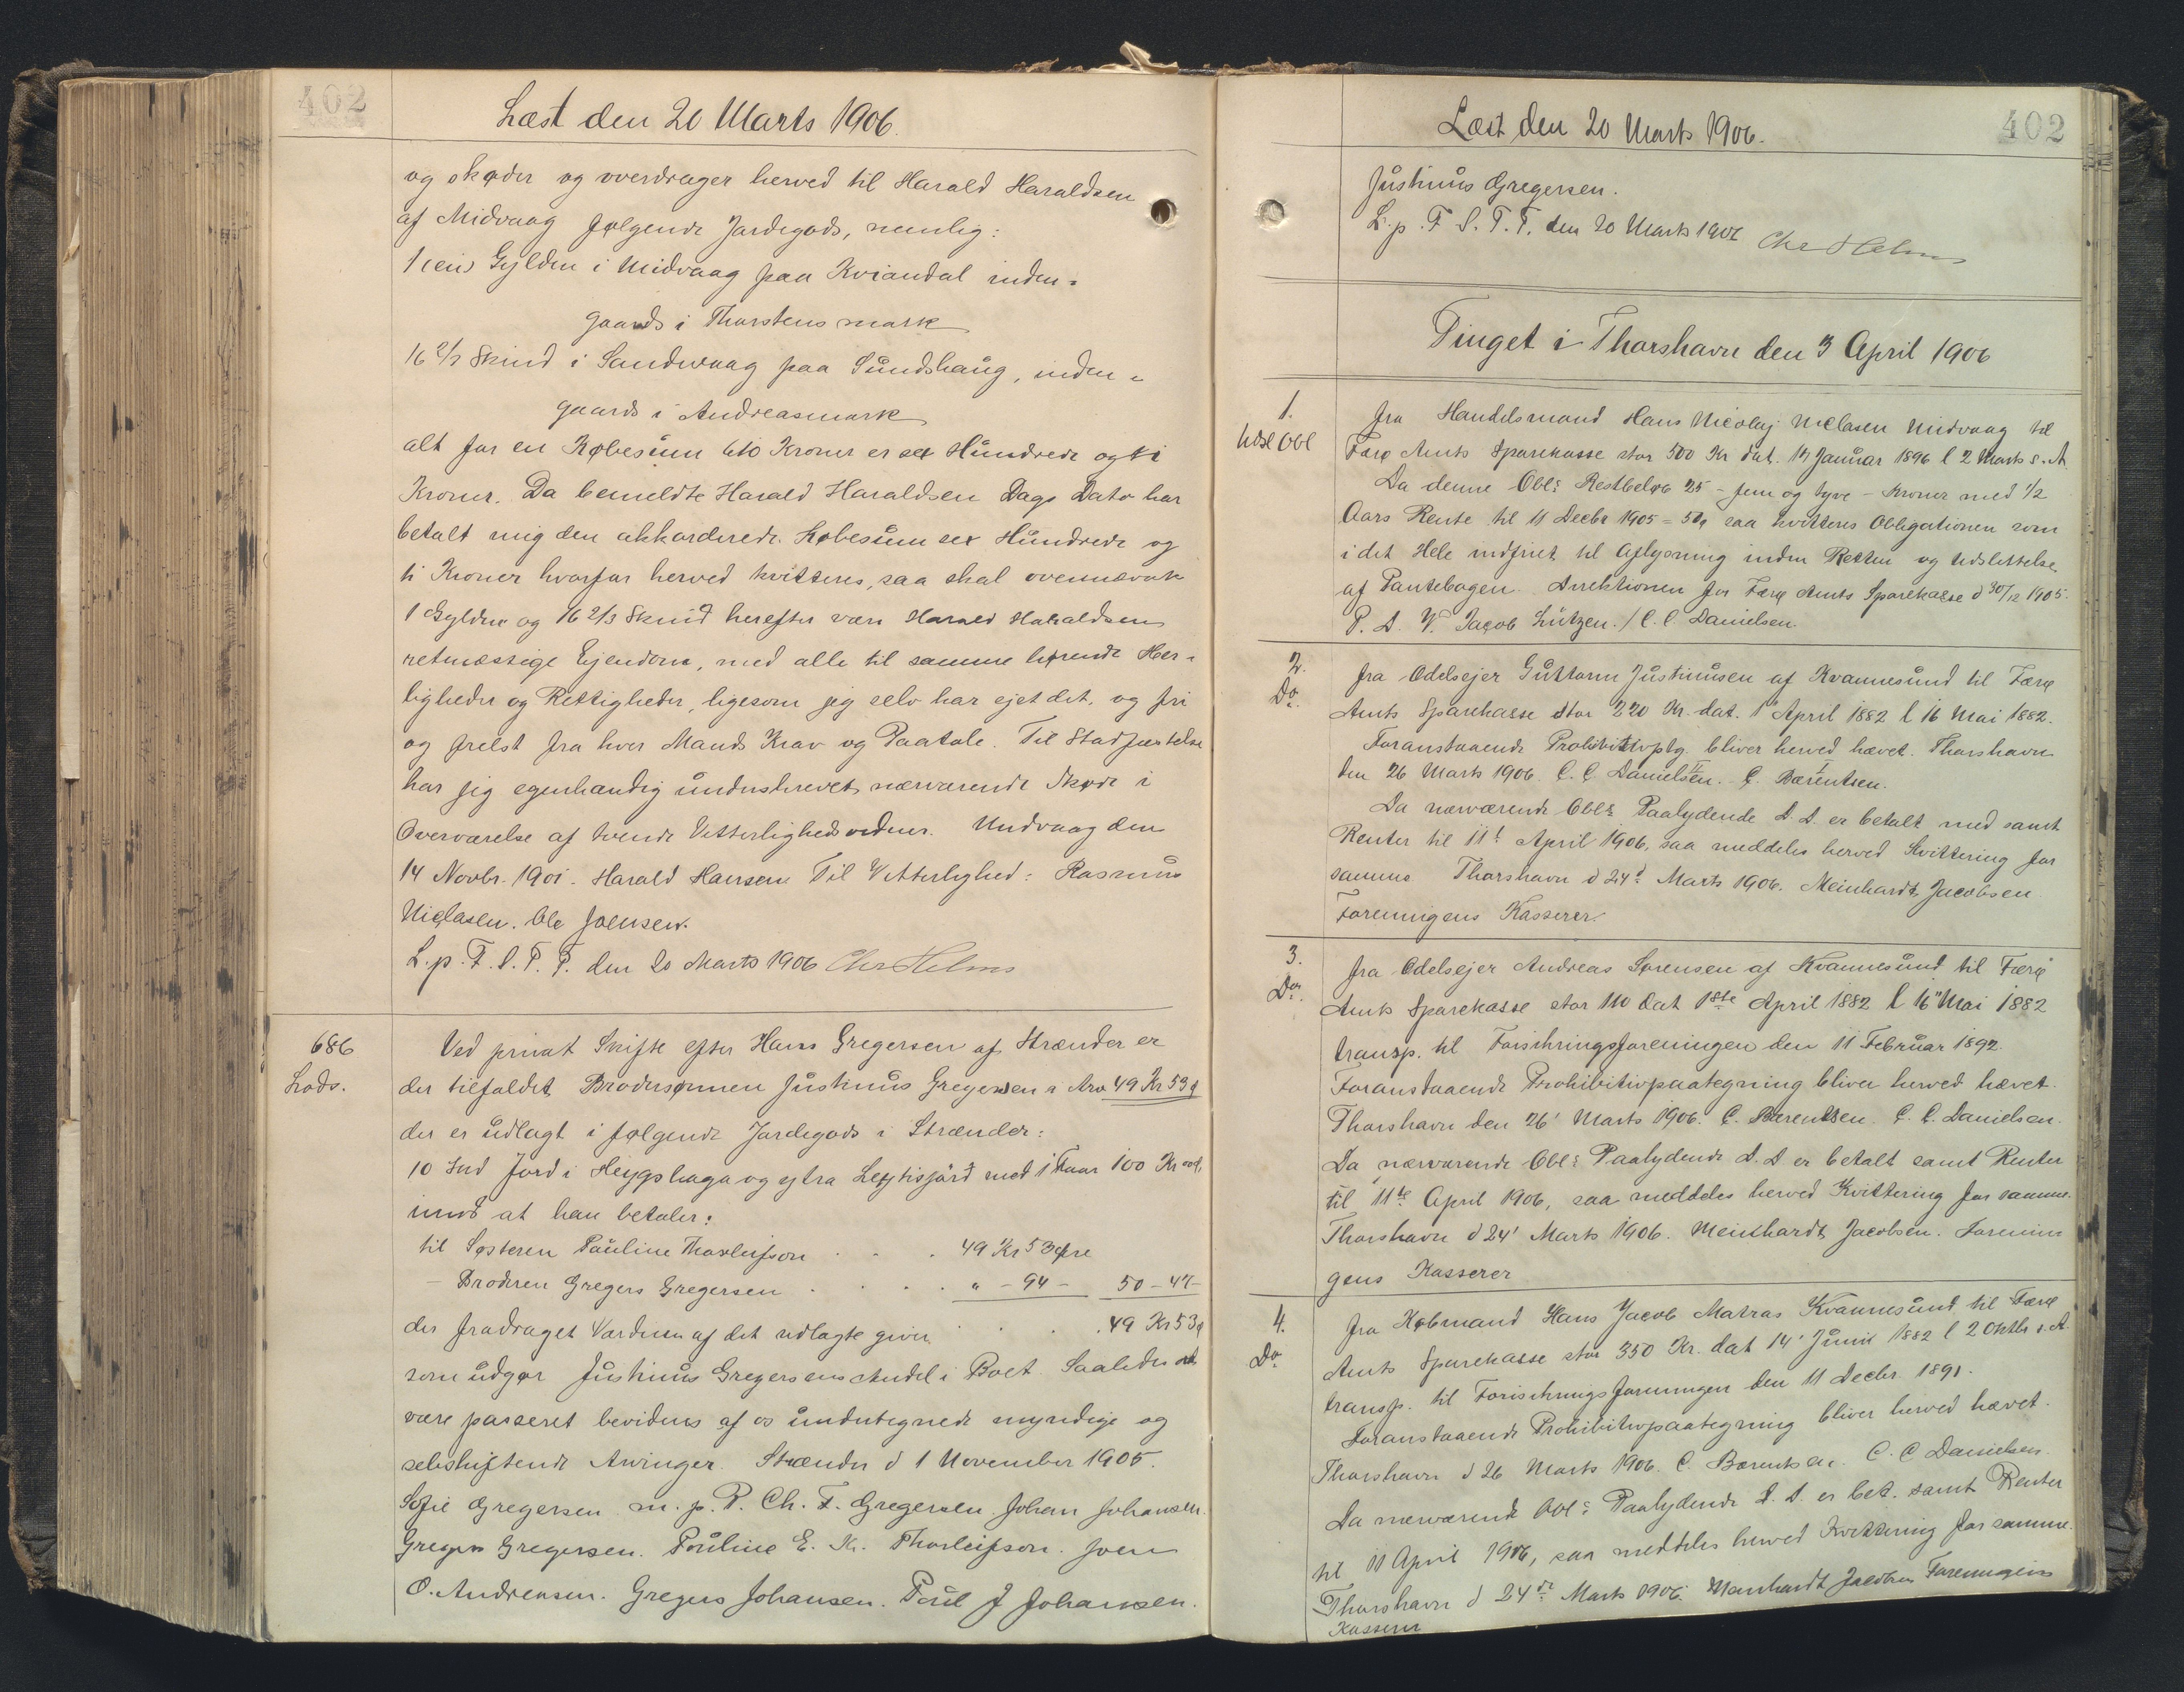 402
Læst den 20 Marts 1906.
og skøder og overdrager herved til Harald Haraldsen
af Midvaag følgende Jordegods, nemlig:
1 (en) Gylden i Midvaag paa Kviandal inden-
gaards i Thorstens mark
16 2/3 Skind i Sandevaag paa Sundshaug, inden-
gaards i Andreasmark
alt for en Købesum 610 Kroner er sex Hundrede og ti
Kroner. Da bemeldte Harald Haraldsen Dags Dato har
betalt mig den akkorderede Købesum sex Hundrede og
ti Kroner hvorfor herved kvitteres, saa skal ovennævnte
1 Gylden og 16 2/3 Skind herefter være Harald Haraldsens
retmæssige Ejendom, med alle til samme hørende Her-
ligheder og Rettigheder, ligesom jeg selv har ejet det, og fri
og frelst fra hver Mands Krav og Paatale. Til Stadfæstelse
har jeg egenhændig underskrevet nærværende Skøde i
Overværelse af tvende Vitterlighedsvidner. Midvaag den
14 Novbr. 1901. Harald Hansen Til Vitterlighed: Rasmus
Niclasen. Ole Joensen.
L. p. F. S. T. T. den 20 Marts 1906 Chr Helms
686
Lods.
Ved privat Skifte efter Hans Gregersen af Strænder er
der tilfaldet Brodersønnen Justinus Gregersen i Arv 49 Kr 53 ø
der er udlagt i følgende Jordegods i Strænder:
10 Ind Jord i Heygshaga og ytra Leytisjørd med 1 Faar 100 Kr
imod at han betaler:
til Søsteren Pauline Thorleifson . . . 49 Kr 53 Øre
— Broderen Gregers Gregersen . . . . " - 94 - 50 - 47 -
der fradraget Værdien af det udlagte giver . . . 49 Kr 53 ø
som udgør Justinus Gregersens Andel i Boet. Saaledes at
være passeret bevidnes af os undertegnede myndige og
selvskiftende Arvinger. Strænder d 1 November 1905.
Sofie Gregersen m. p. P. Ch. F. Gregersen. Johan Johansen.
Gregers Gregersen. Pouline E. K. Thorleifson. Joen
O. Andreasen. Gregers Johansen. Poul J Johansen.
402
Læst den 20 Marts 1906.
Justinus Gregersen.
L. p. F. S. T. T. den 20 Marts 1906 Chr Helms
Tinget i Thorshavn den 3 April 1906
1.
Udsl Obl
fra Handelsmand Hans Nicolaj Niclasen Midvaag til
Færø Amts Sparekasse stor 500 Kr dat. Januar 1896 l 2 Marts s. A.
Da denne Obls Restbeløb 25 - fem og tyve - Kroner med 1/2
Aars Rente til 11 Decbr 1905 = 50 ø saa kvitteres Obligationen som
i det Hele indfriet til Aflysning inden Retten og Udslettelse
af Pantebogen. Direktionen for Færø Amts Sparekasse d 30/12 1905.
P. D. V. Jacob Lützen. / C. C Danielsen.
2.
Do.
fra Odelsejer Guttorm Justinusen af Kvannesund til Færø
Amts Sparekasse stor 220 Kr. dat. 1 April 1882 l 16 Mai 1882.
Foranstaaende Prohibitivptg. bliver herved hævet. Thorshavn
den 26 Marts 1906. C. C Danielsen. C. Bærentsen.
Da nærværende Obls Paalydende D. D. er betalt med samt
Renter til 11t April 1906, saa meddeles herved Kvittering for
samme Thorshavn d 24d Marts 1906. Meinhardt Jacobsen
Foreningens Kasserer.
3.
Do.
fra Odelsejer Andreas Sørensen af Kvannesund til Færø
Amts Sparekasse stor 110 dat 1ste April 1882 l 16" Mai 1882
transp. til Forsikringsforeningen den 11 Februar 1892.
Foranstaaende Prohibitivpaategning bliver herved hævet.
Thorshavn den 26' Marts 1906. C. Bærentsen. C. C. Danielsen.
Da nærværende Obls Paalydende D. D er betalt samt Renter
til 11te April 1906, saa meddeles herved Kvittering for samme.
Thorshavn d 24' Marts 1906. Meinhardt Jacobsen. Forenin
gens Kasserer
4.
Do.
fra Købmand Hans Jacob Matras Kvannesund til Færø
Amts Sparekasse stor 350 Kr. dat 14' Juni 1882 l 2 Oktbr s. A.
transp. til Forsikringsforeningen den 11 Decbr. 1891.
Foranstaaende Prohibitivpaategning bliver herved hævet.
Thorshavn d 26 Marts 1906. C. Bærentsen. C. C Danielsen.
Da nærværende Obls Paalydende D. D. er bet. samt Renter
til 11 April 1906, saa meddeles herved Kvittering for samme.
Thorshavn d 24de Marts 1906. Meinhardt Jacobsen Foreningens
Kasserer